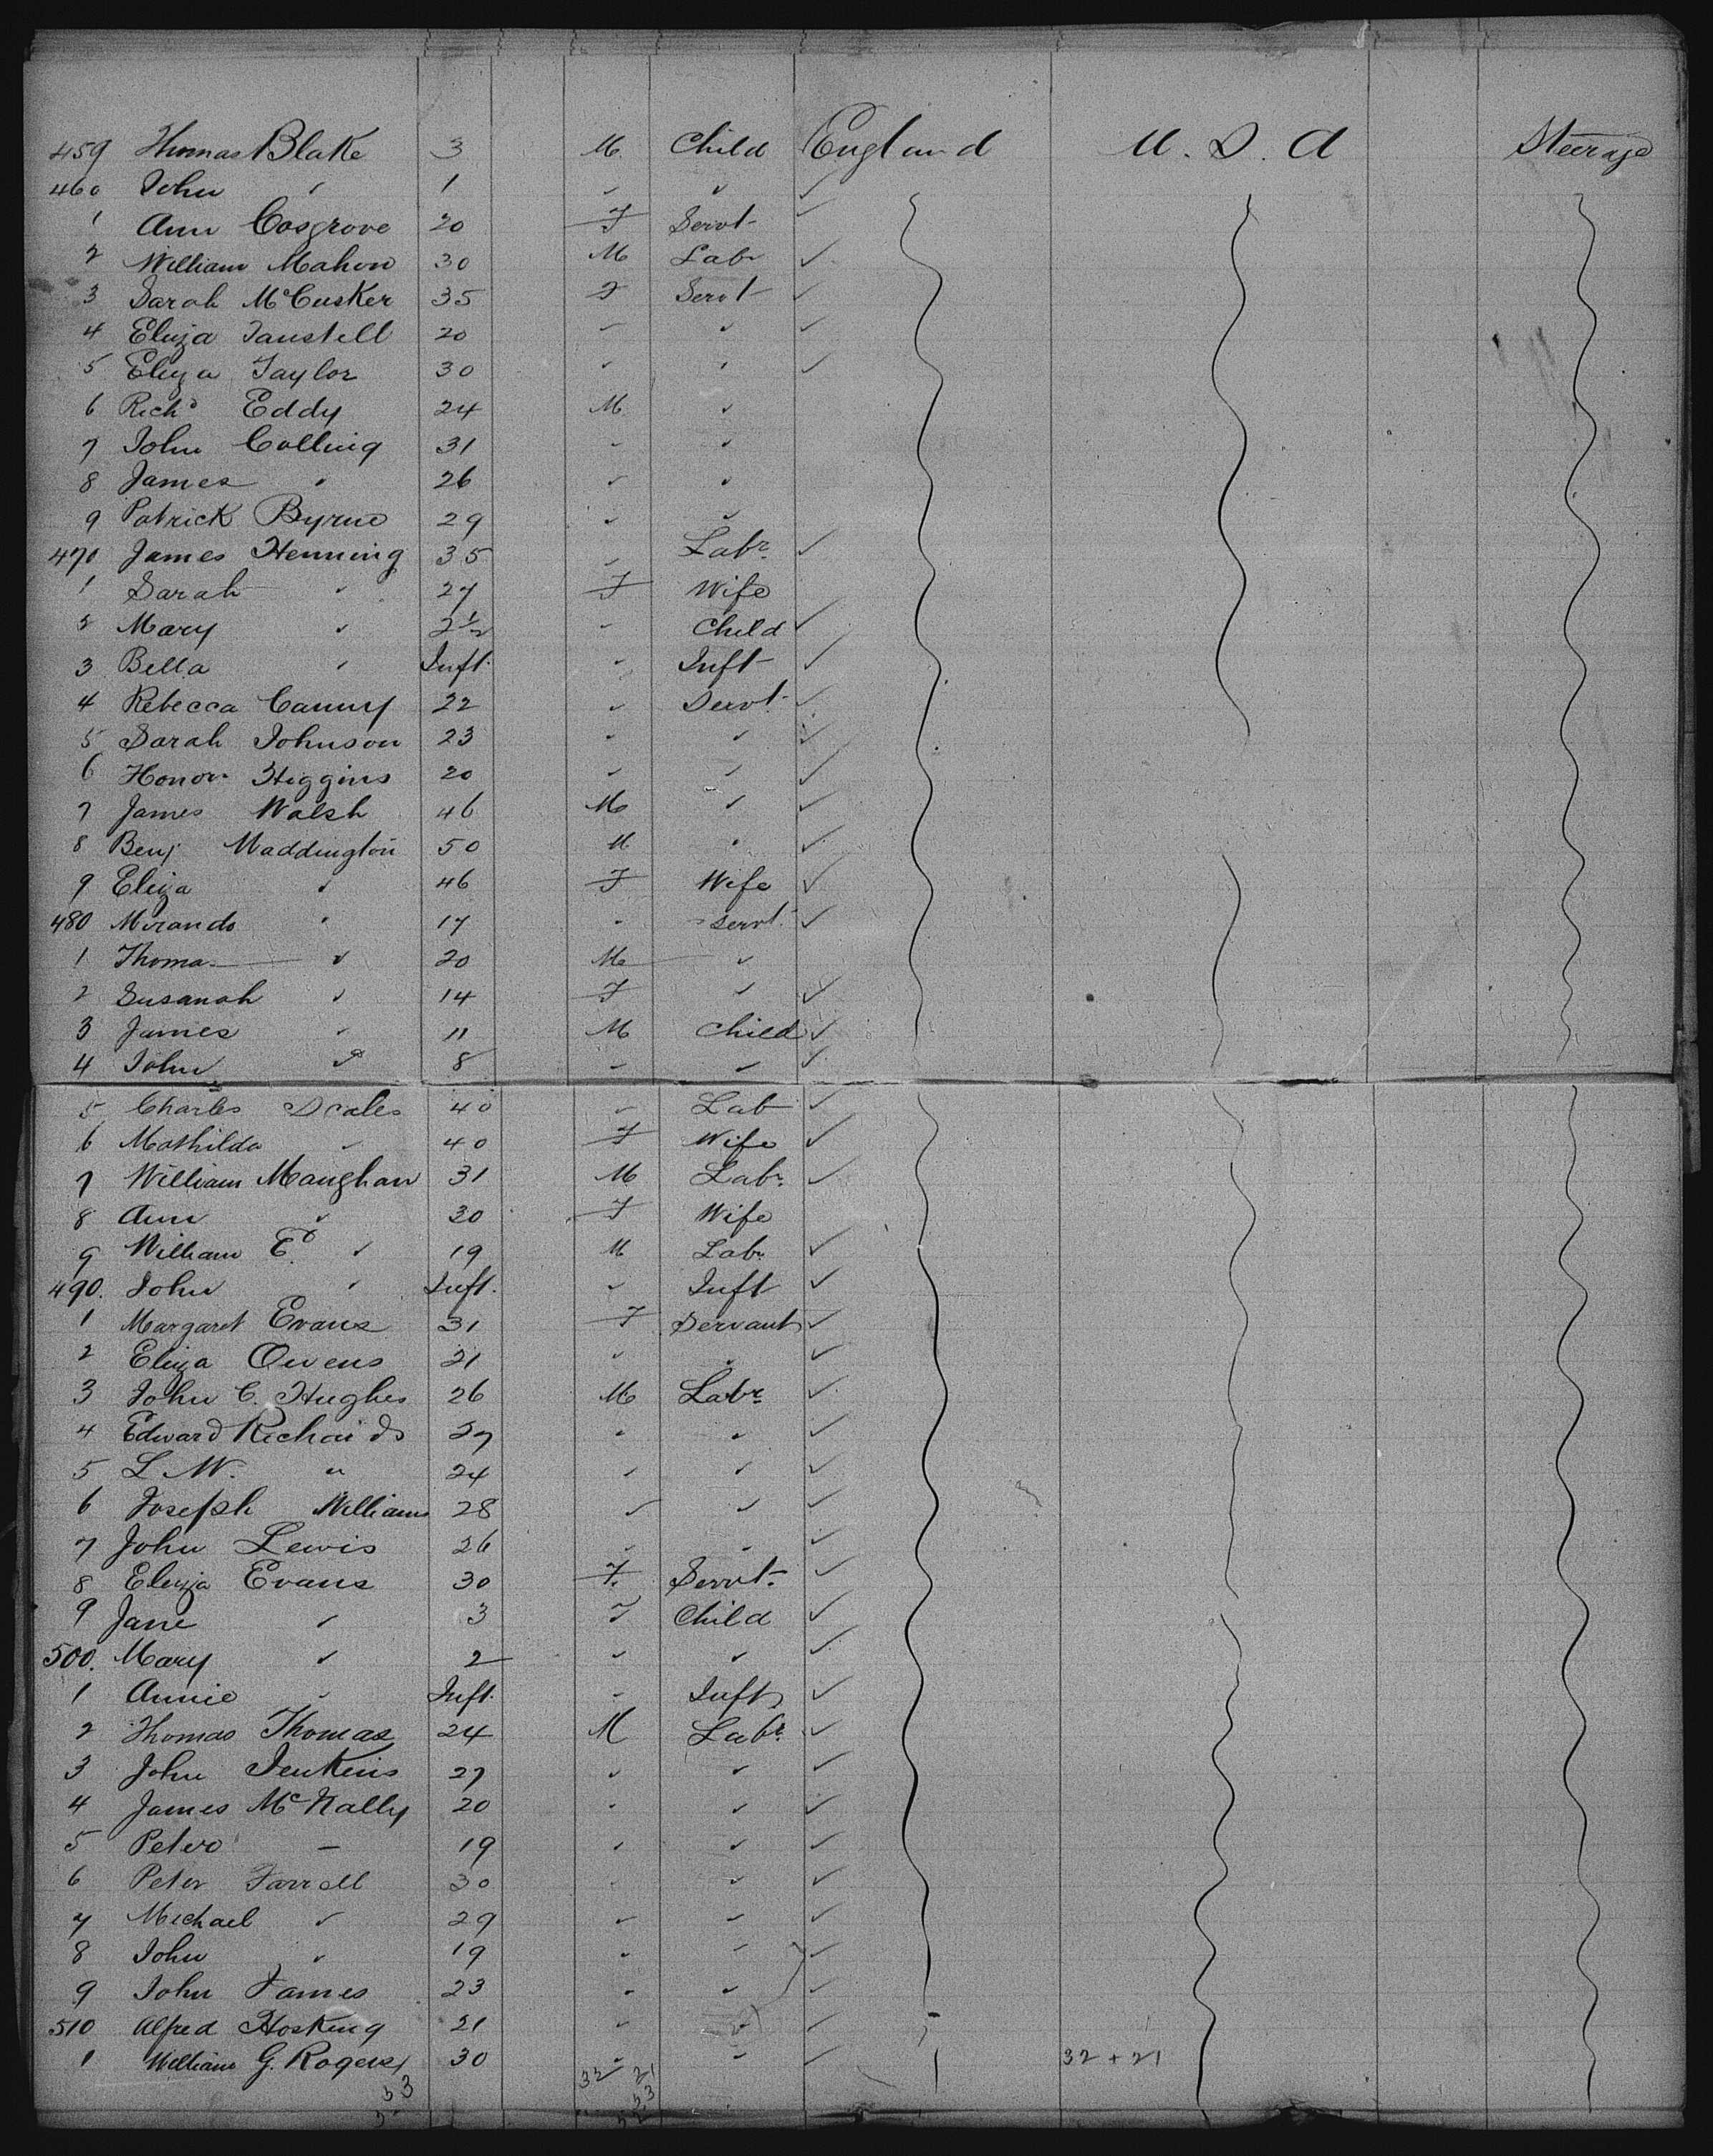 459 Thomas Blake 3 M Child England U.S.A Steerage
460 John " 1 " "
1 Ann Cosgrove 20 F Servt
2 William Mahon 30 M Labr
3 Sarah McCusker 35 F Servt
4 Eliza 20 " "
5 Eliza Taylor 30 " "
6 Richd Eddy 24 M "
7 John Colling 31 " "
8 James " 26 " "
9 Patrick Byrne 29 " "
470 James Henning 35 " Labr
1 Sarah " 27 F Wife
2 Mary " 2½ " Child
3 Bella " Inft. " Inft
4 Rebecca Canny 22 " Servt
5 Sarah Johnson 23 " "
6 Honor Higgins 20 " "
7 James Walsh 46 M "
8 Benj Waddington 50 M "
9 Eliza " 46 F Wife
480 Miranda " 17 " Servt
1 Thomas " 20 M "
2 Susanah " 14 F "
3 James " 11 M Child
4 John " 8 " "
5 Charles Scales 40 " Lab
6 Mathilda " 40 F Wife
7 William Maughan 31 M Labr
8 Ann " 30 F Wife
9 William Ed " 19 M Labr
490. John " Inft. " Inft
1 Margaret Evans 31 F Servant
2 Eliza Owens 21 " "
3 John C. Hughes 26 M Labr
4 Edward Richards 27 " "
5 L W. " 24 " "
6 Joseph Williams 28 " "
7 John Lewis 26 " "
8 Eliza Evans 30 F. Servt.
9 Jane " 3 F Child
500. Mary " 2 " "
1 Annie " Inft. " Inft
2 Thomas Thomas 24 M Labr
3 John Jenkins 27 " "
4 James McNally 20 " "
5 Peter — 19 " "
6 Peter Farrell 30 " "
7 Michael " 29 " "
8 John " 19 " "
9 John James 23 " "
510 Alfred Hosking 21 " "
1 William G. Rogers 30 " " 32 + 21
53 32 21
53